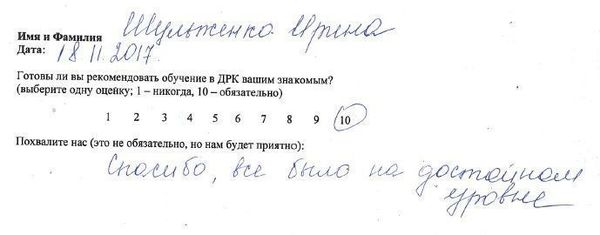 Имя и Фамилия Шульженко Ирина
Дата: 18.11.2017.
Готовы ли вы рекомендовать обучение в ДРК вашим знакомым?
(выберите одну оцейку; 1 – никогда, 10 – обязательно)
1 2 3 4 5 6 7 8 9 10
Похвалите нас (это не обязательно, но нам будет приятно):
Спасибо, все было на достойном
уровне